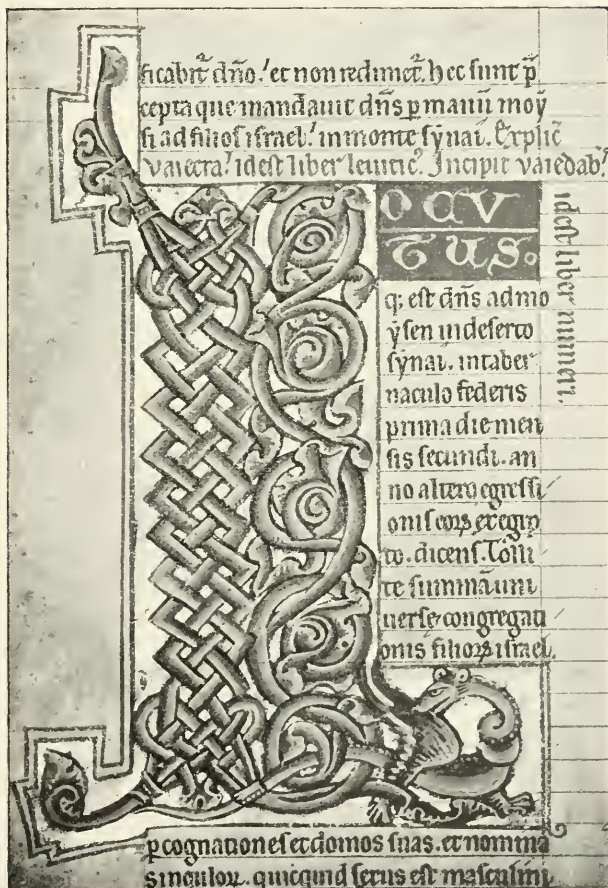 ficabit᷑ dño.ꝰ et non redimet᷑. hec sunt p̄
cepta que mandauit dñs ꝑ manū moẏ
si ad filios israel.ꝰ in monte sẏnai. Explic̄
vaiecra.ꝰ id est liber leuitic̄. Incipit vaiedab᷑.ꝰ
id est liber numeri.
L
OCV
TUS.
q; est dñs ad mo
ẏsen in deserto
sẏnai. in taber
naculo federis
prima die men
sis secundi. an
no altero egressi
onis eoꝝ ex egip
to. dicens. Tolli
te summā uni
uerse congregati
onis filioꝝ israel.
ꝑ cognationes et domos suas. et nomina
singuloꝝ. quicquid sexus est masculini